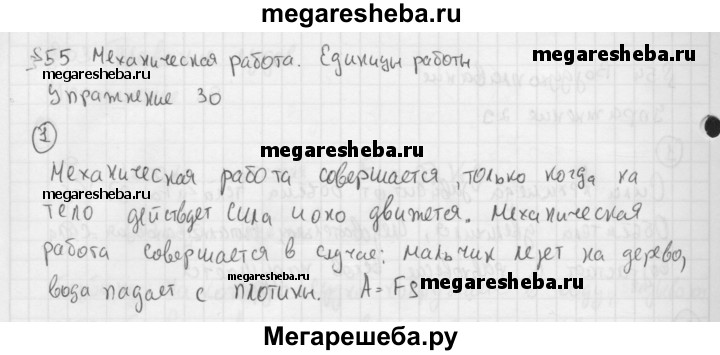 megaresheba.ru
§55 Механическая работа. Единицы работы
megaresheba.ru
megaresheba.ru
Упражнение 30
1
megaresheba.ru
Механическая работа совершается, только когда на
megaresheba.ru
тело действует сила и оно движется. Механическая
работа совершается в случае: мальчик лезет на дерево,
megaresheba.ru
вода падает с плотины. A = FS
megaresheba.ru
Мегарешеба.ру